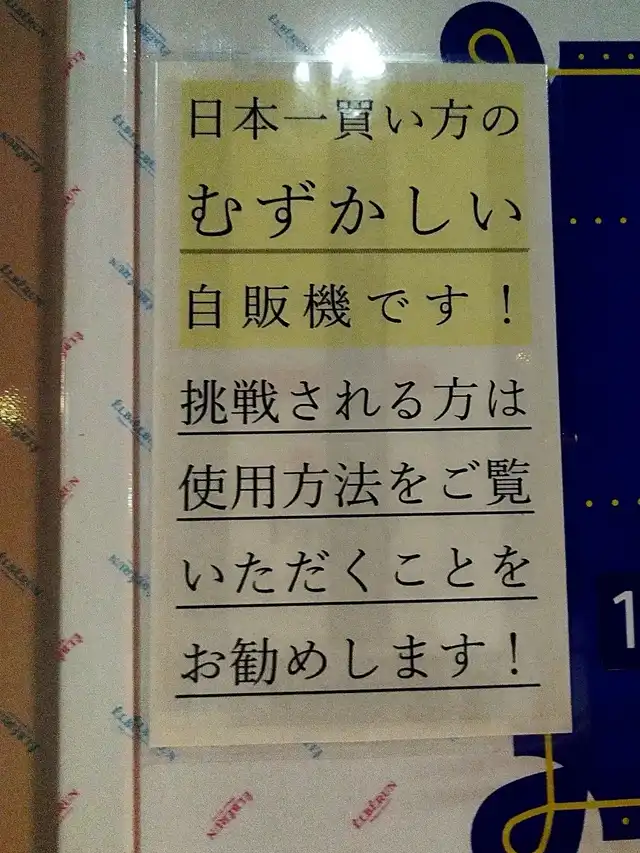 日本一買い方の
むずかしい
自販機です！
挑戦される方は
使用方法をご覧
いただくことを
お勧めします！
1
ÉLBÉRUN
ÉLBÉRUN